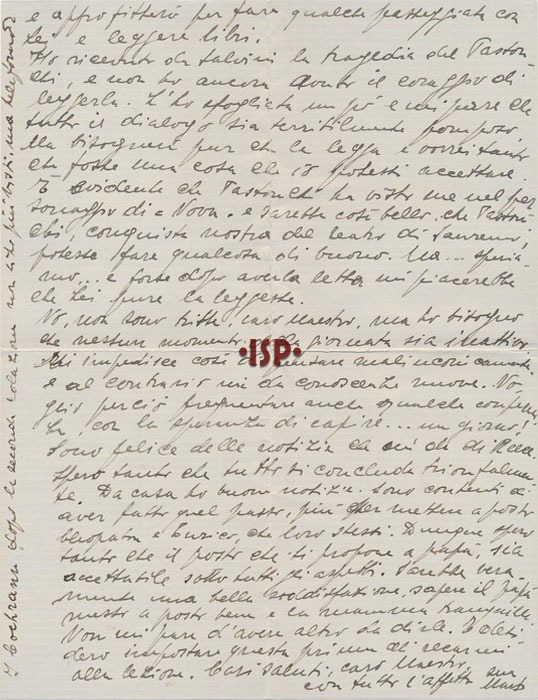 e approfitterò per fare qualche passeggiata con
lei e leggere libri.
Ho ricevuto da Salvini la tragedia del Paston-
chi, e non ho ancora avuto il coraggio di
leggerla. L'ho sfogliata un pò e mi pare che
tutto il dialogo sia terribilmente pomposo.
Ma bisognerà pur che la legga e vorrei tanto
che fosse una cosa che io potessi accettare.
È evidente che Pastonchi ha visto me nel per
sonaggio di = Nova = e sarebbe così bello, che Paston
chi, conquista nostra del teatro di Sanremo,
potesse fare qualcosa di buono. Ma... speria
mo... e forse dopo averla letta mi piacerebbe
che Lei pure la leggesse.
No, non sono triste, caro Maestro, ma ho bisogno
che nessun momento della giornata sia inattivo.
Mi impedisce così di pensare malinconicamente
e al contrario mi dà conoscenze nuove. Vo-
glio perciò frequentare anche qualche conferen
za, con la speranza di capire... un giorno!
Sono felice delle notizie che mi dà di
spero tanto che tutto si concluda trionfalmen
te. Da casa ho buone notizie. Sono contenti di
aver fatto quel passo, più per mettere a posto
Cleopatra e Enrico, che loro stessi. Dunque spero
tanto che il posto che si propone a papà, sia
accettabile sotto tutti gli aspetti. Sarebbe vera
mente una bella soddisfazione, sapere il papà
messo a posto bene e la mamma tranquilla.
Non mi pare d'avere altro da dirle. E desi
dero impostare questa prima di recarmi
alla lezione. Cari saluti, caro Maestro,
con tutto l'affetto sua
Marta
Cochrane dopo la seconda colazione non l'ho più visto, ma telefonò
·ISP·